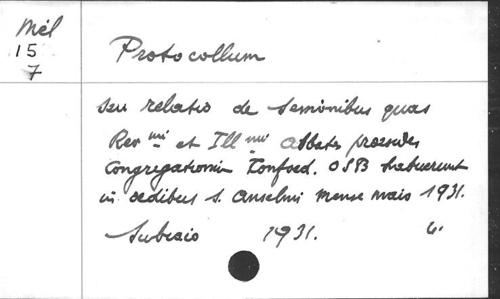 Mél
15
7
Protocollum
seu relatio de sessionibus quas
Rev mi et Ill mi Abbates praesides
Congregationum Confoed. OSB habuerunt
in aedibus S. Anselmi mense maio 1931.
Subiaco 1931.